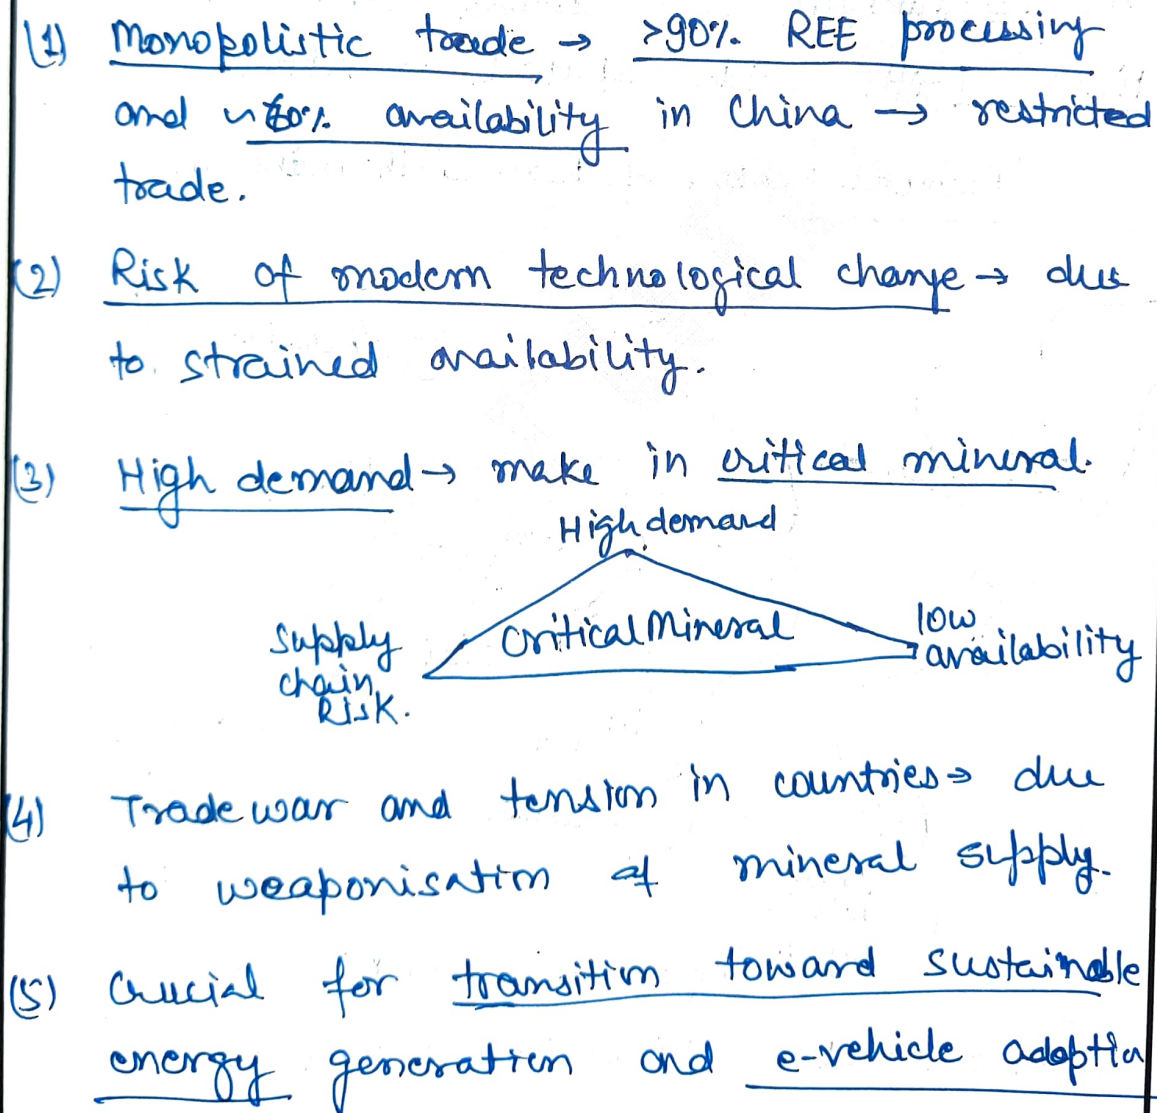 (1) Monopolistic trade → >90% REE processing
and ~60% availability in China → restricted
trade.
(2) Risk of modern technological change → due
to strained availability.
(3) High demand → make in critical mineral.
High demand
Critical Mineral
low
availability
Supply
chain
Risk.
(4) Trade war and tension in countries → due
to weaponisation of mineral supply.
(5) Crucial for transition toward sustainable
energy generation and e-vehicle adoption